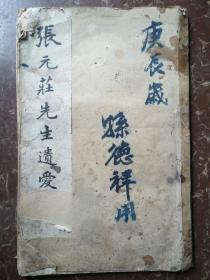 庚辰歲
孫德祥用
張元莊先生遺愛